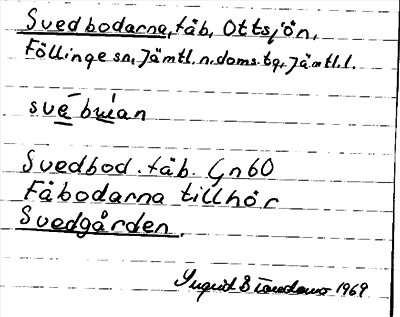 Svedbodarna, fäb, Ottsjön,
Föllinge sn, Jämtl. n. doms. tg, Jämtl. l.
svē buan
Svedbod. fäb. Gn60
Fäbodarna tillhör
Svedgården.
1969